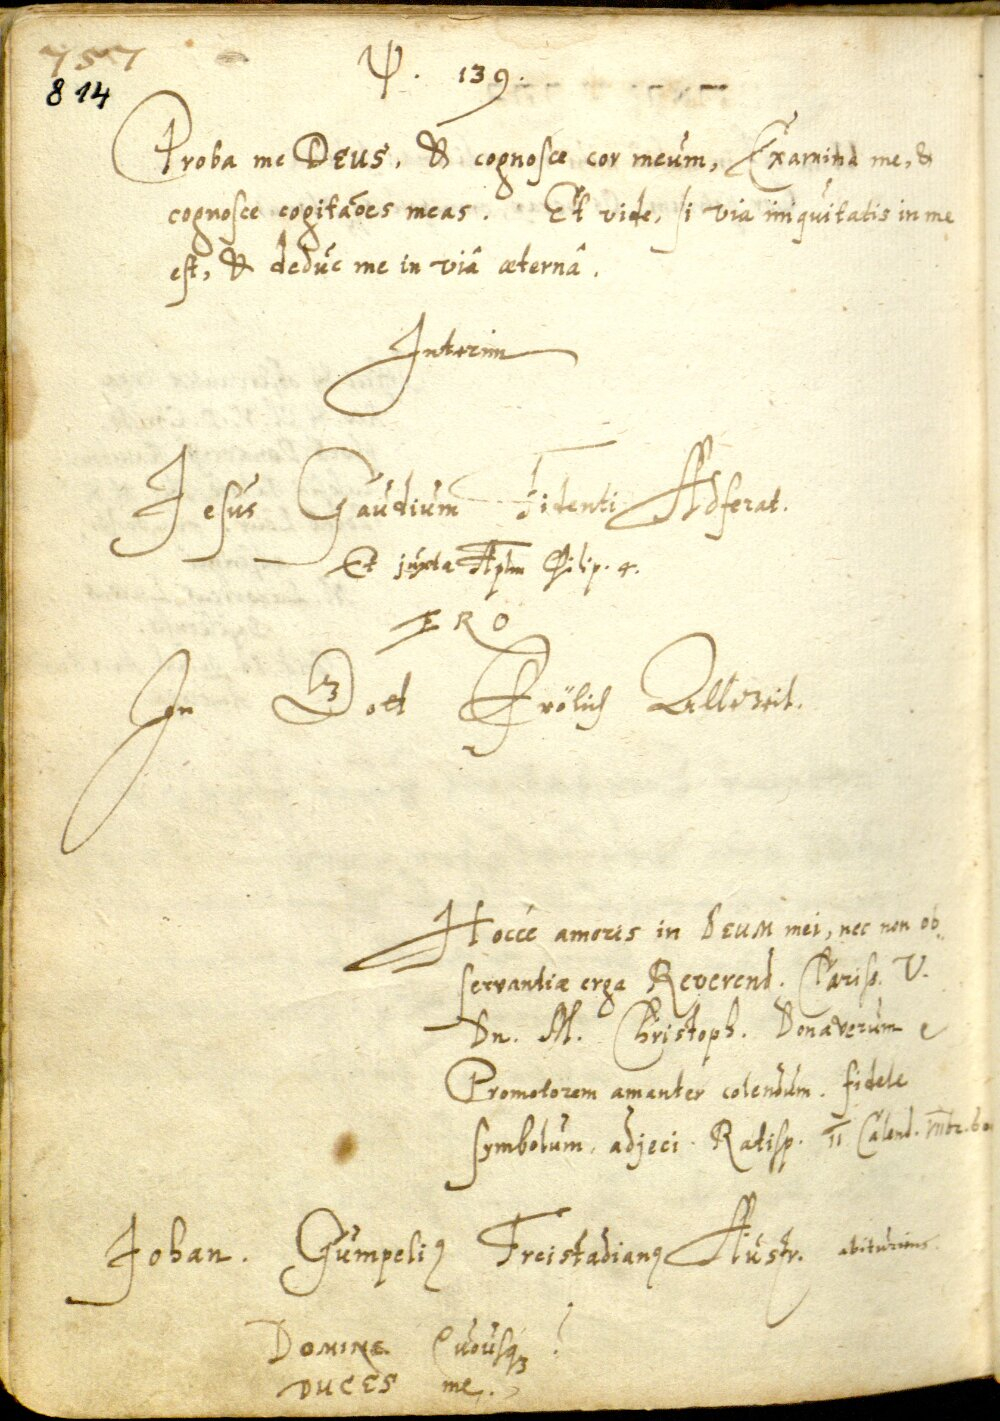 757
814
Ψ. 139.
Proba me DEUS, & cognosce cor meum, Examina me, &
cognosce cogitaões meas. Et vide, si via iniquitatis in me
est, & deduc me in viâ æternâ.
Interim
Jesus Gaudium Fidenti Adferat.
Et juxta Aplm Philip. 4.
ERO
In Gott Frölich Allezeit.
Hocce amoris in DEUM mei, nec non ob
servantiæ erga Reverend. Clariss. V.
Dn. M. Christoph. Donaverum
Promotorem amanter colendum. fidele
symbolum, adjeci. Ratisp. II Calend. VIIbr. 60
Johan. Gumpeliꝰ Freistadianꝰ Austr. abiturius
DOMINE Quousqꝫ ?
DUCES me.